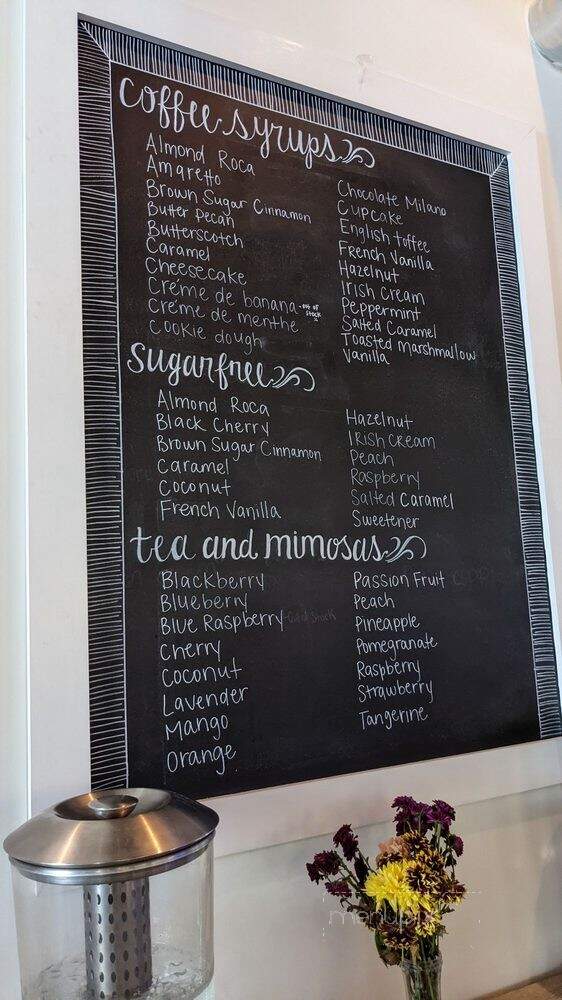 coffee syrups
Almond Roca
Amaretto
Brown Sugar Cinnamon
Butter Pecan
Butterscotch
Caramel
Cheesecake
Créme de banana - out of stock
Créme de menthe
Cookie dough
Chocolate Milano
Cupcake
English toffee
French Vanilla
Hazelnut
Irish Cream
Peppermint
Salted Caramel
Toasted Marshmallow
Vanilla
sugarfree
Almond Roca
Black Cherry
Brown Sugar Cinnamon
Caramel
Coconut
French Vanilla
Hazelnut
Irish Cream
Peach
Raspberry
Salted Caramel
Sweetener
tea and mimosas
Blackberry
Blueberry
Blue Raspberry - Out of Stock
Cherry
Coconut
Lavender
Mango
Orange
Passion Fruit
Peach
Pineapple
Pomegranate
Raspberry
Strawberry
Tangerine